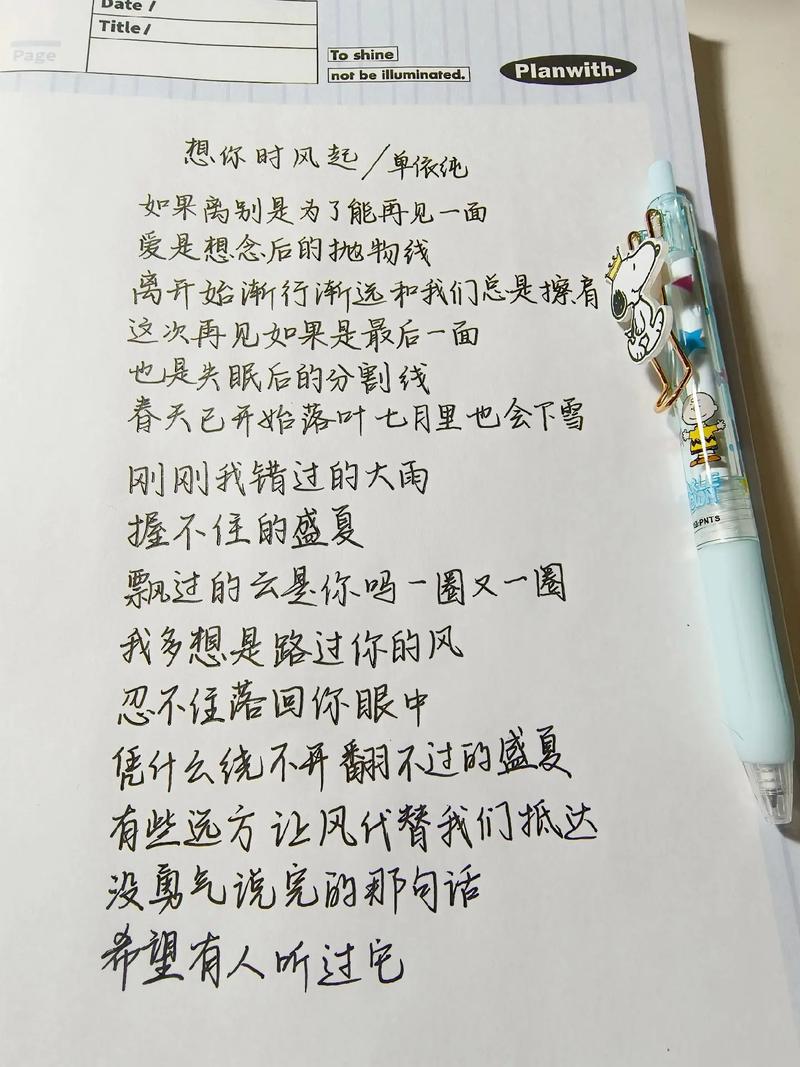 Date /
Title /
Page
To shine
not be illuminated.
Planwith-
想你时风起/单依纯
如果离别是为了能再见一面
爱是想念后的抛物线
离开始渐行渐远和我们总是擦肩
这次再见如果是最后一面
也是失眠后的分割线
春天已开始落叶七月里也会下雪
刚刚我错过的大雨
握不住的盛夏
飘过的云是你吗一圈又一圈
我多想是路过你的风
忍不住落回你眼中
凭什么绕不开翻不过的盛夏
有些远方让风代替我们抵达
没勇气说完的那句话
希望有人听过它
PNTS